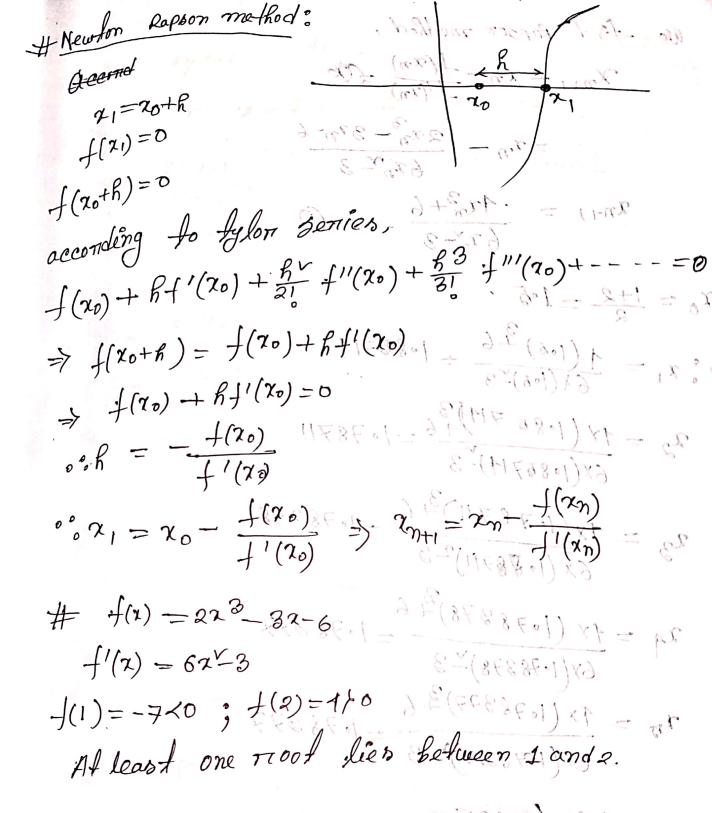 # Newton Rapson method:
x₁ = x₀+h
f(x₁) = 0
f(x₀+h) = 0
h
x₀ x₁
according to tylor series,
f(x₀) + hf'(x₀) + h²/2! f''(x₀) + h³/3! f'''(x₀) + ----- = 0
⇒ f(x₀+h) = f(x₀) + hf'(x₀)
⇒ f(x₀) + hf'(x₀) = 0
∴ h = - f(x₀)/f'(x₀)
∴ x₁ = x₀ - f(x₀)/f'(x₀) ⇒ xₙ₊₁ = xₙ - f(xₙ)/f'(xₙ)
# f(x) = 2x³ - 3x - 6
f'(x) = 6x² - 3
f(1) = -7<0 ; f(2) = 4>0
At least one root lies between 1 and 2.